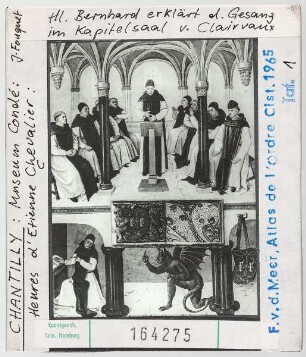 Hl. Bernhard erklärt d. Gesang
im Kapitelsaal v. Clairvaux
J. Fouquet
CHANTILLY: Museum Condé:
Heures d'Etienne Chevalier:
F. v. d. Meer, Atlas de l'ordre Cist. 1965
1
Kunstgesch.
Marburg
164275